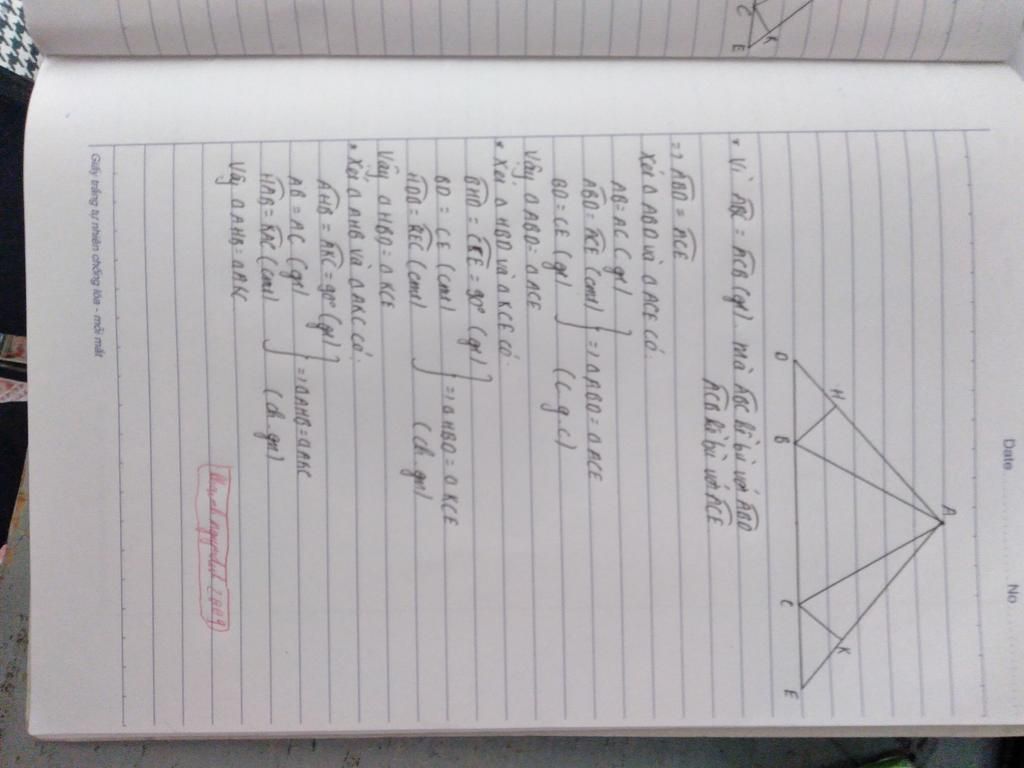 Date No
A
H
K
D B C E
* Vì ABC = ACB (gt). mà ABC kề bù với ABD
ACB kề bù với ACE
=> ABD = ACE
Xét Δ ABD và Δ ACE có:
AB = AC (gt)
ABD = ACE (cmt) } => Δ ABD = Δ ACE
BD = CE (gt) (c.g.c)
Vậy Δ ABD = Δ ACE
* Xét Δ HBD và Δ KCE có:
BHD = CKE = 90° (gt)
BD = CE (cmt) } => Δ HBD = Δ KCE
HDB = KEC (cmt) (ch.gn)
Vậy Δ HBD = Δ KCE
* Xét Δ AHB và Δ AKC có:
AHB = AKC = 90° (gt)
AB = AC (gt) } => Δ AHB = Δ AKC
HAB = KAC (cmt) (ch.gn)
Vậy Δ AHB = Δ AKC
Giấy trắng tự nhiên chống lóa - mỏi mắt
C K
E